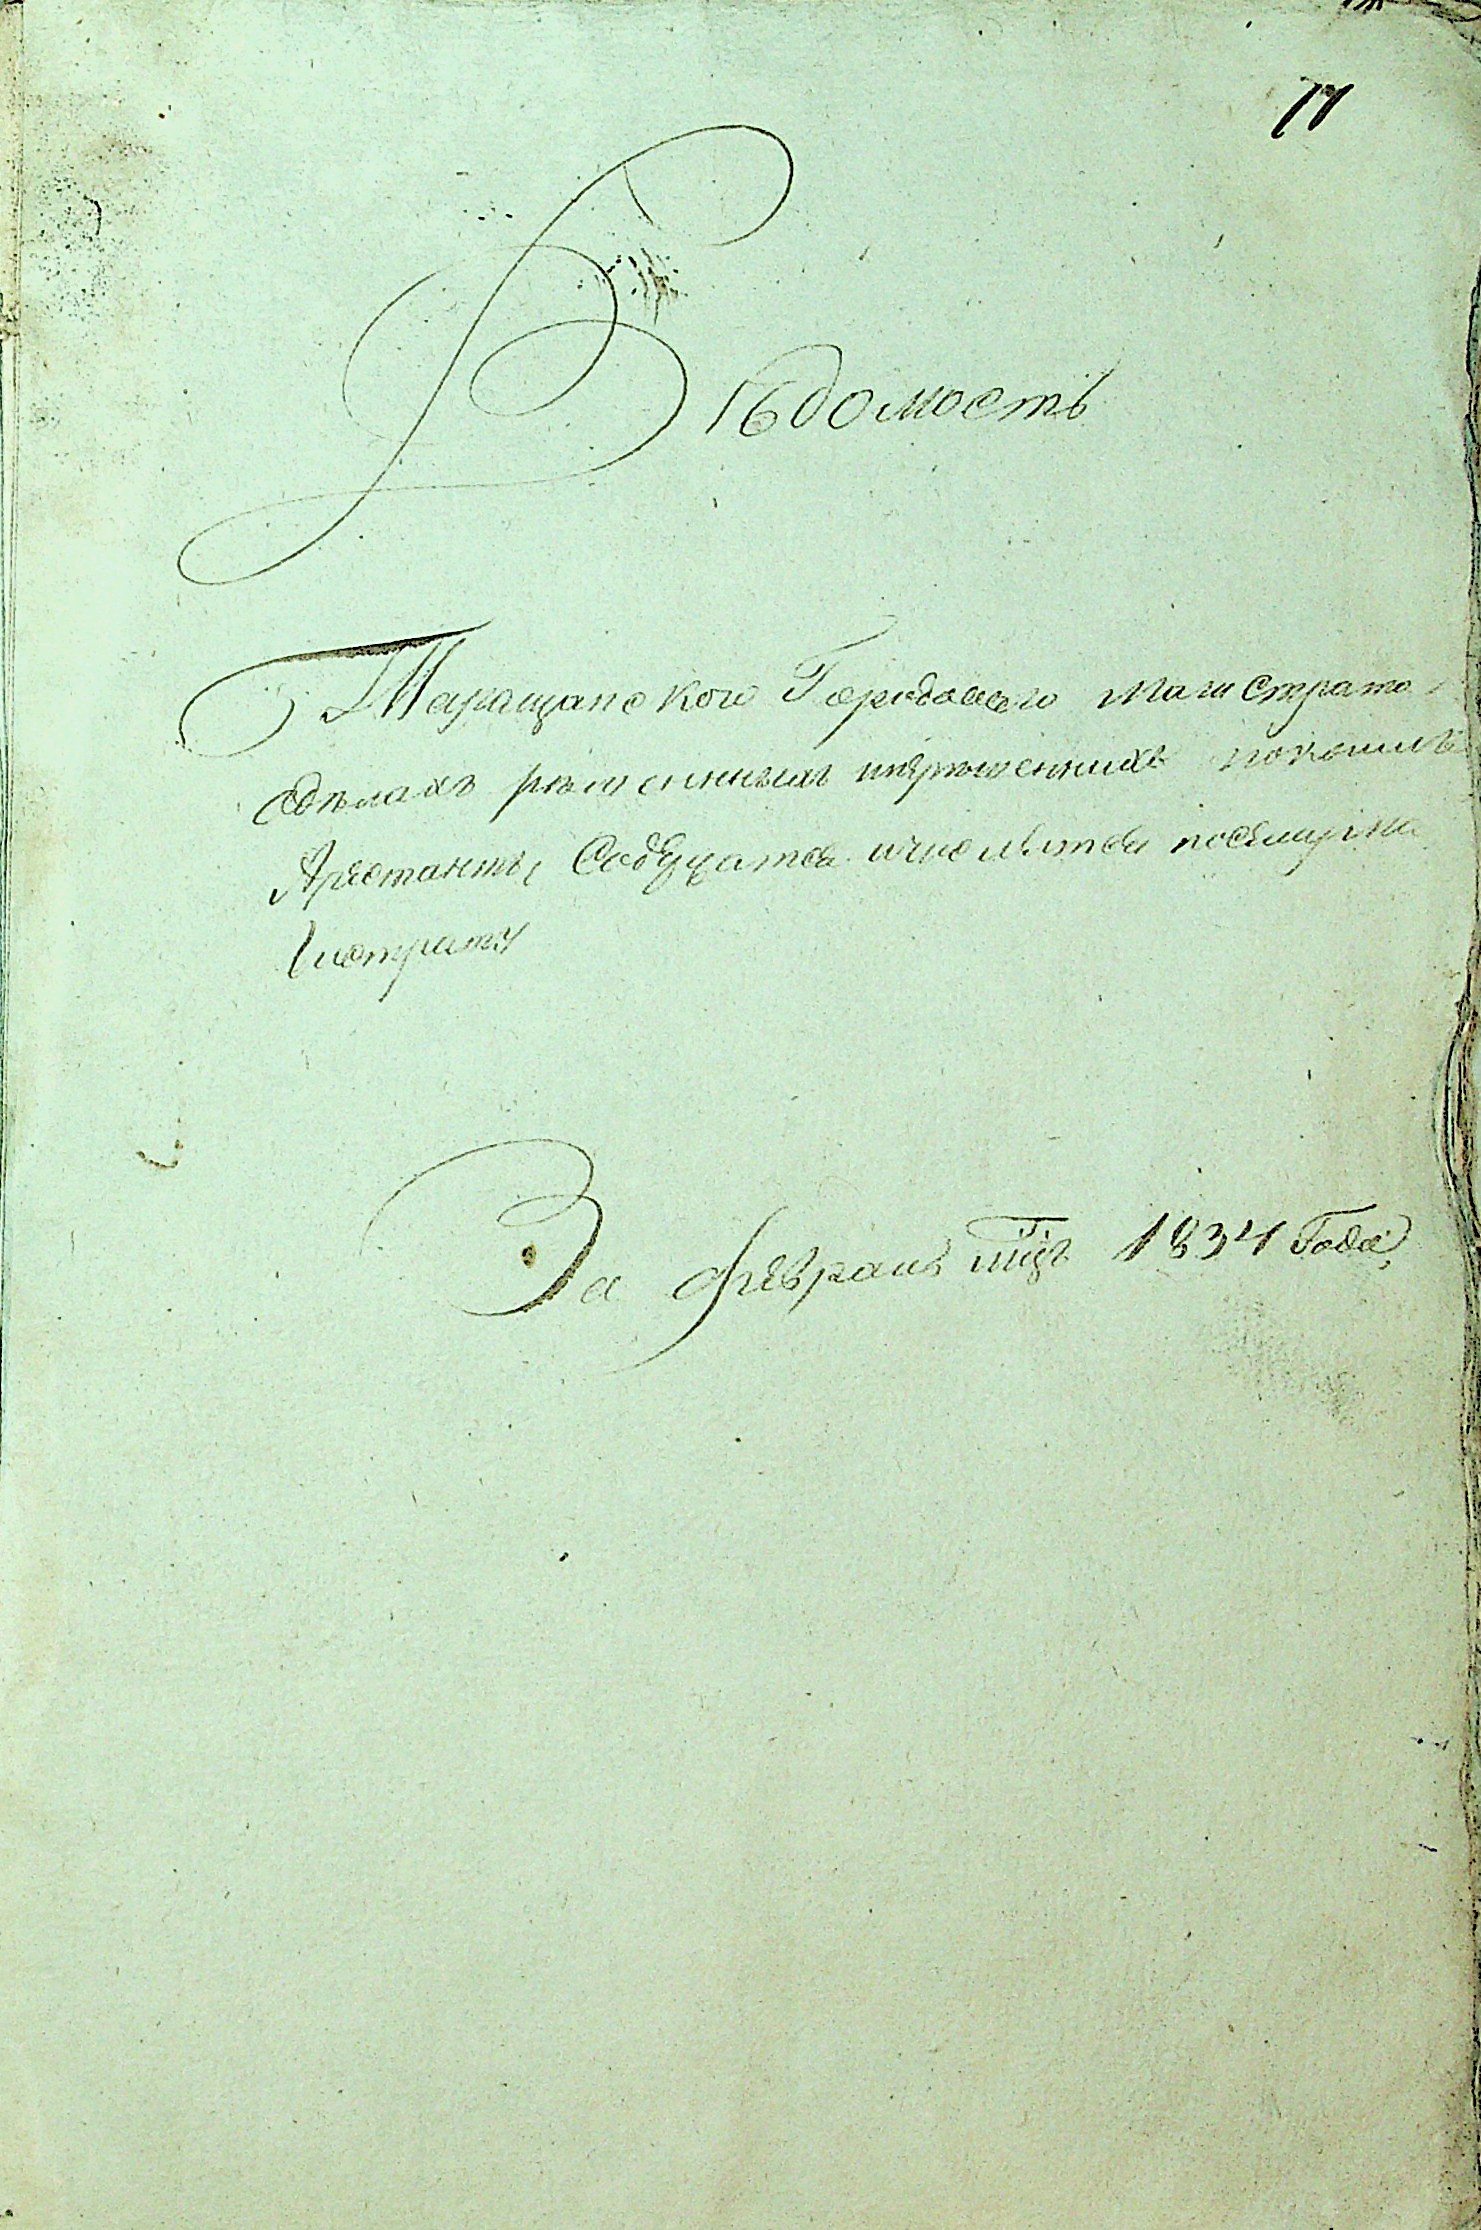 11
Вѣдомость
Таращанского Городового Магистрата
одѣлахъ решенныхъ инерешенныхъ покоимъ
Арестанты, Содержатся ичислятся посемума
гистрату
За февраль мцъ 1834 Года,